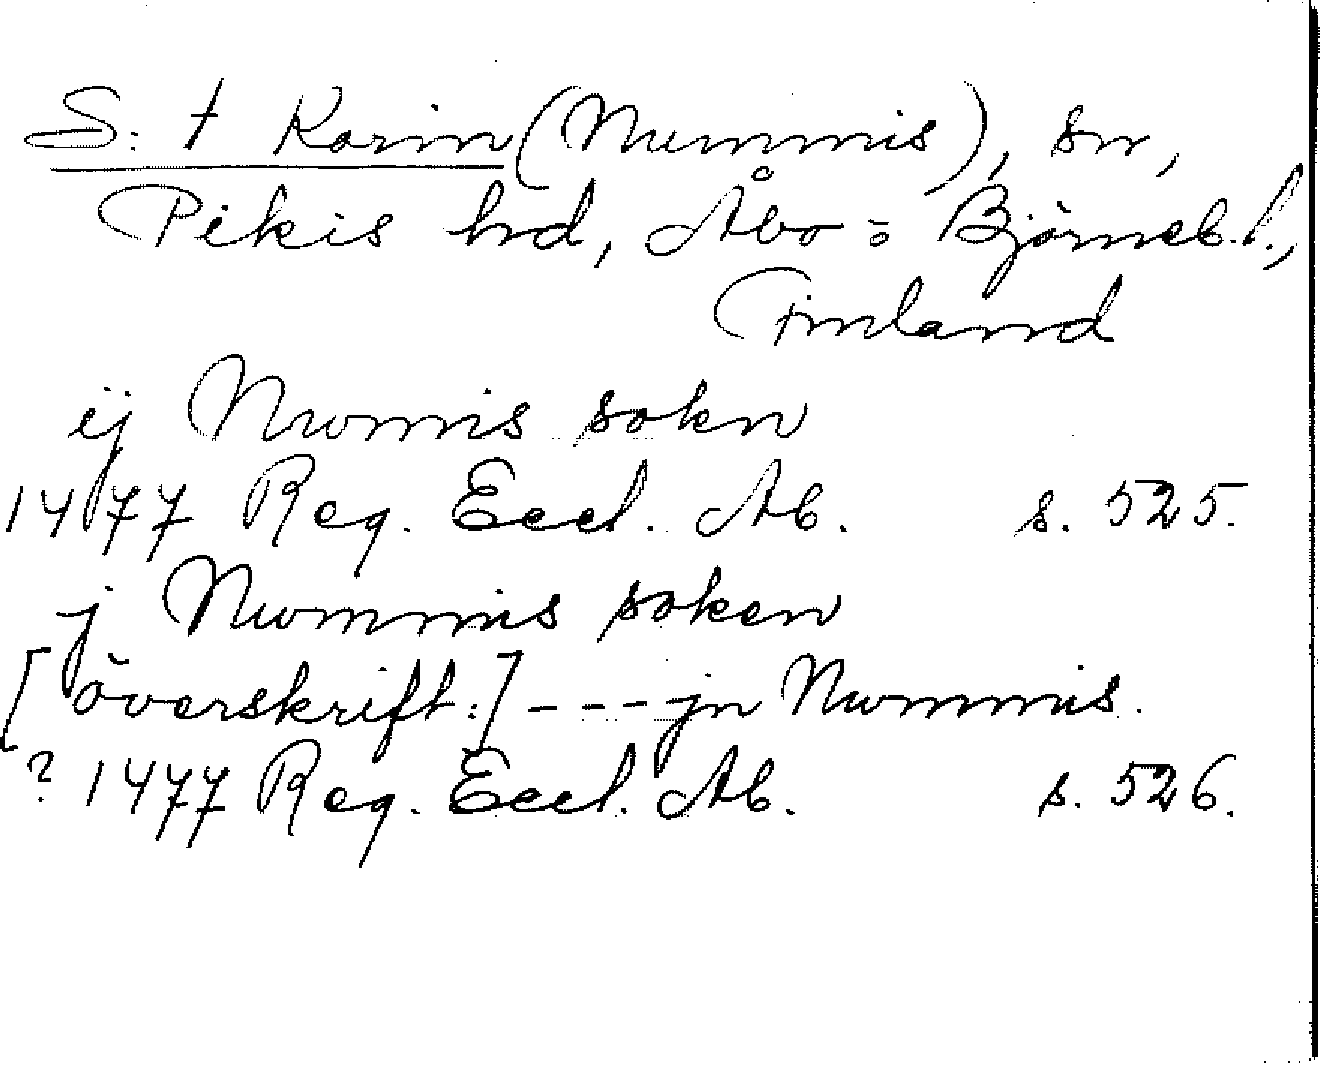 S:t Karin (Nummis), sn,
Pikis hd, Åbo = Björneb. l.,
Finland
ij Nwmis sokn
1477 Reg. Eccl. Ab. s. 525.
j Nwmmis soken
[överskrift:] --- jn Nwmmis.
? 1477 Reg. Eccl. Ab. s. 526.